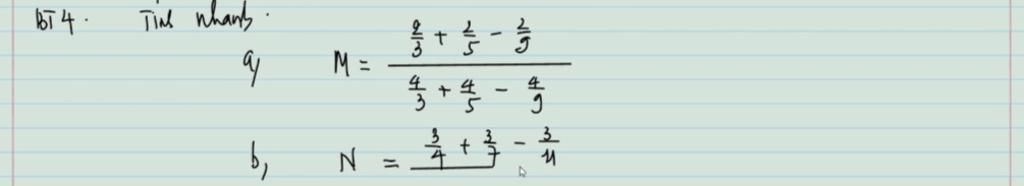 BT4. Tính nhanh.
a, M = (2/3 + 2/5 - 2/9) / (4/3 + 4/5 - 4/9)
b, N = 3/4 + 3/7 - 3/11